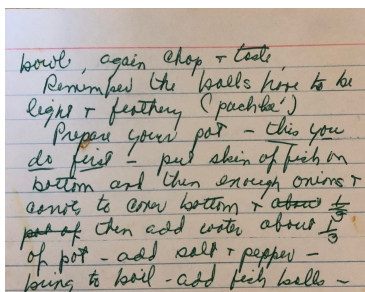 bowl, again chop + taste
Remember the balls have to be
light + feathery (puchké)
Prepare your pot - this you
do first - put skin of fish on
bottom and then enough onions +
carrots to cover bottom + about 1/3
pot of then add water about 1/3
of pot - add salt + pepper -
bring to boil - add fish balls -